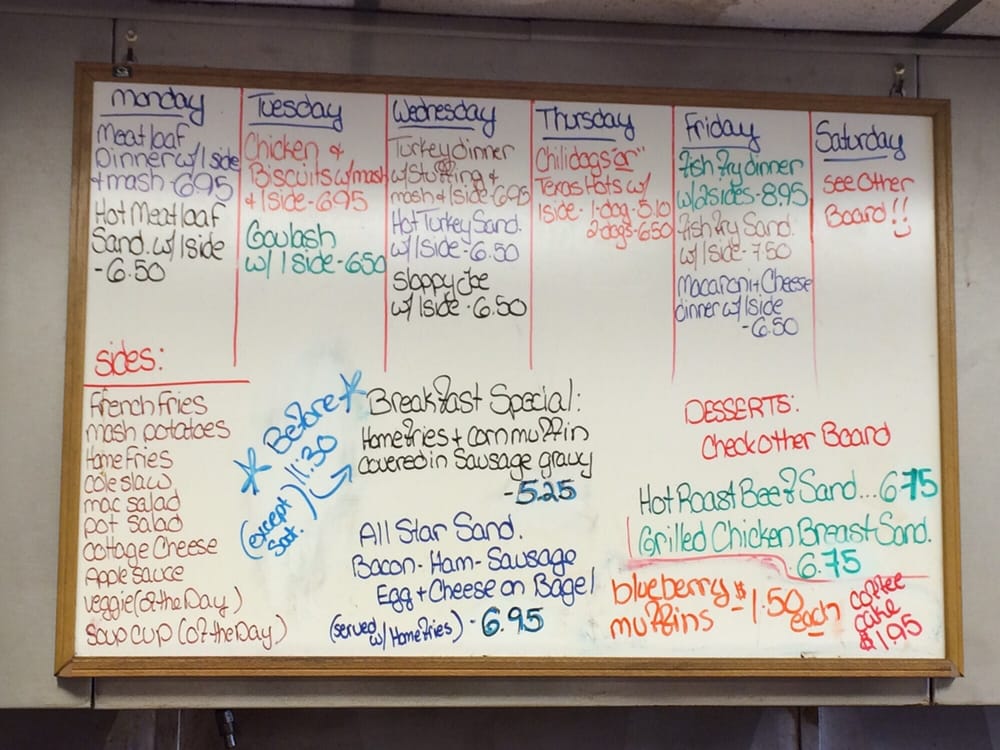 Monday
Meatloaf
Dinner w/1 side
+ mash - 6.95
Hot Meatloaf
Sand. w/1 side
- 6.50
Tuesday
Chicken &
Biscuits w/mash
+ 1 side - 6.95
Goulash
w/ 1 side - 6.50
Wednesday
Turkey dinner
w/stuffing +
mash + 1 side - 6.95
Hot Turkey Sand.
w/1 side - 6.50
Sloppy Joe
w/ 1 side - 6.50
Thursday
Chilidogs "or"
Texas Hots w/
1 side - 1-dog - 5.10
2 dogs - 6.50
Friday
fish fry dinner
w/2 sides - 8.95
fish fry Sand.
w/1 side - 7.50
Macaroni + Cheese
dinner w/1 side
- 6.50
Saturday
See Other
Board!!
sides:
French Fries
mash potatoes
Home Fries
cole slaw
mac salad
pot salad
Cottage Cheese
Apple sauce
Veggie (of the Day)
Soup Cup (of the Day)
* Before *
11:30
(except
Sat.)
Breakfast Special:
Homefries + corn muffin
covered in Sausage gravy
- 5.25
All Star Sand.
Bacon - Ham - Sausage
Egg + Cheese on Bagel
(served
w/ Homefries) - 6.95
DESSERTS:
Check other Board
Hot Roast Beef Sand... 6.75
Grilled Chicken Breast Sand.
6.75
blueberry
muffins
$1.50
each
coffee
cake
$1.95